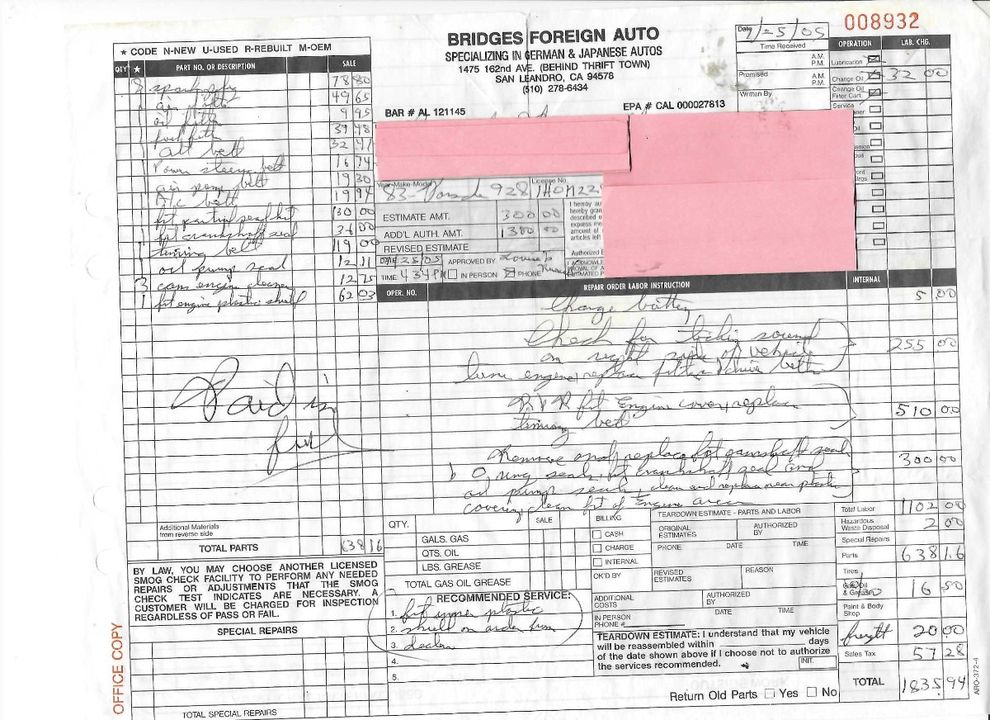 008932
BRIDGES FOREIGN AUTO
SPECIALIZING IN GERMAN & JAPANESE AUTOS
1475 162nd AVE. (BEHIND THRIFT TOWN)
SAN LEANDRO, CA 94578
(510) 278-6434
BAR # AL 121145
EPA # CAL 000027813
Date 1/25/05
Time Received A.M. P.M.
Promised A.M. P.M.
Written By
OPERATION LAB. CHG.
Lubrication
Change Oil 32 00
Change Oil Filter Cart.
Service
★ CODE N-NEW U-USED R-REBUILT M-OEM
QTY ★ PART NO. OR DESCRIPTION SALE
8 78 80
1 air filter 49 65
1 oil filter 9 95
1 fuel filter 39 48
alt belt 32 47
1 Power steering belt 16 74
1 air pump belt 19 30
1 A/C belt 19 94
1 130 00
1 frt crankshaft seal
1 timing belt 119 00
1 oil pump seal 12 11
3 cans engine cleaner 12 75
1 frt engine plastic shield 62 03
Year-Make-Model License No.
83- Porsche 928
ESTIMATE AMT. 300 00
ADD'L AUTH. AMT. 1300 00
REVISED ESTIMATE
DATE APPROVED BY
TIME 4:34 PM IN PERSON PHONE
OPER. NO. REPAIR ORDER LABOR INSTRUCTION INTERNAL
Change battery 5 00
Check for ticking sound
on right side of vehicle 255 00
tune engine, replace filters + drive belts
R & R frt Engine cover, replace 510 00
timing belt
Remove and replace frt camshaft seal 300 00
& O ring seals, frt crankshaft seal and
oil pump seal, clean and replace near plastic
covering, clean frt of Engine area
Paid in
full
Additional Materials from reverse side
TOTAL PARTS 638 16
BY LAW, YOU MAY CHOOSE ANOTHER LICENSED
SMOG CHECK FACILITY TO PERFORM ANY NEEDED
REPAIRS OR ADJUSTMENTS THAT THE SMOG
CHECK TEST INDICATES ARE NECESSARY. A
CUSTOMER WILL BE CHARGED FOR INSPECTION
REGARDLESS OF PASS OR FAIL.
SPECIAL REPAIRS
TOTAL SPECIAL REPAIRS
OFFICE COPY
QTY. SALE
GALS. GAS
QTS. OIL
LBS. GREASE
TOTAL GAS OIL GREASE
RECOMMENDED SERVICE:
1. frt under plastic
2. shield on order from
3. dealer
4.
5.
BILLING
CASH
CHARGE
INTERNAL
CK'D BY
TEARDOWN ESTIMATE - PARTS AND LABOR
ORIGINAL ESTIMATES AUTHORIZED BY
PHONE DATE TIME
REVISED ESTIMATES REASON
ADDITIONAL COSTS AUTHORIZED BY
IN PERSON DATE TIME
PHONE #
TEARDOWN ESTIMATE: I understand that my vehicle
will be reassembled within days
of the date shown above if I choose not to authorize
the services recommended. INIT.
Return Old Parts Yes No
Total Labor 1102 00
Hazardous Waste Disposal 2 00
Special Repairs
Parts 638 16
Tires
Gas, Oil & Grease 16 50
Paint & Body Shop
freight 20 00
Sales Tax 57 28
TOTAL 1835.94
ARO-372-4